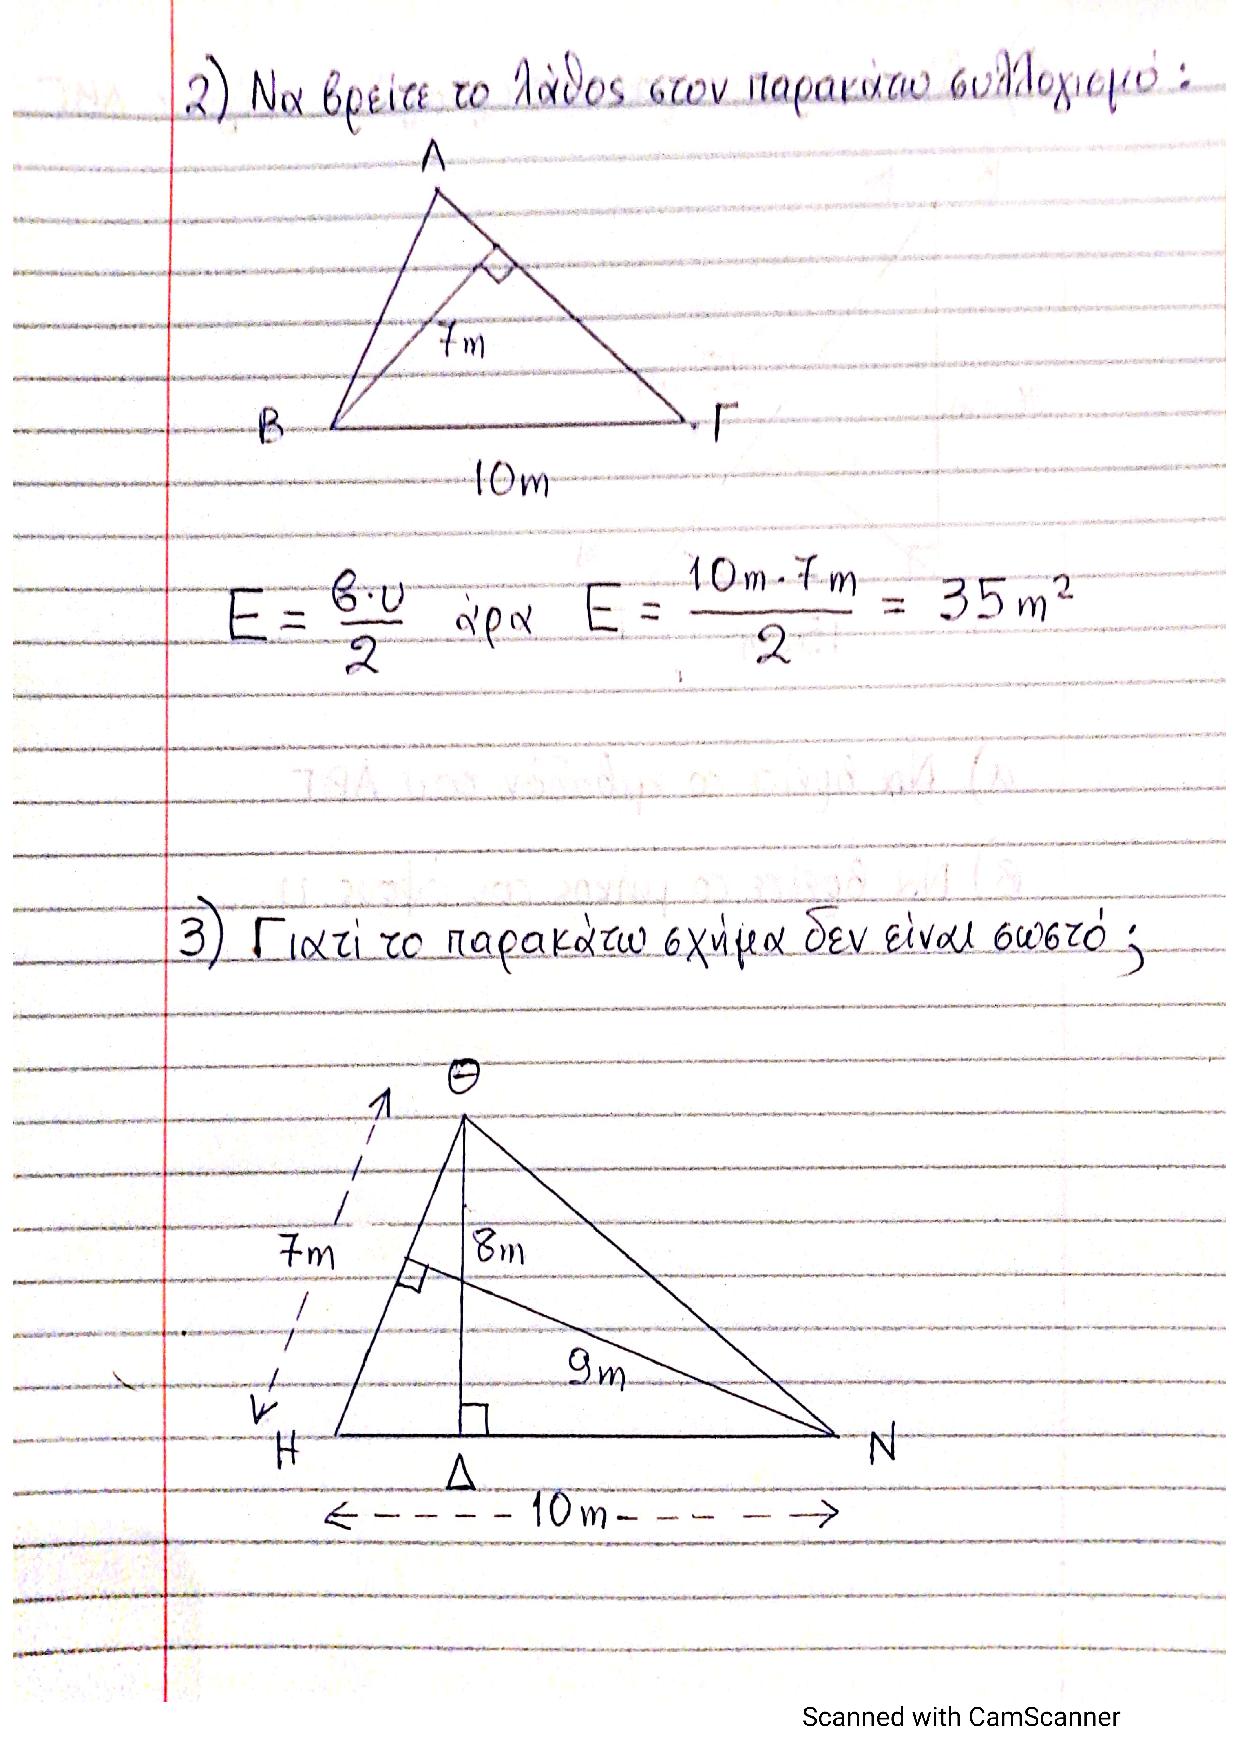 2) Να βρείτε το λάθος στον παρακάτω συλλογισμό:
Α
7m
Β
Γ
10m
Ε = β·υ/2 άρα Ε = 10m·7m/2 = 35m²
3) Γιατί το παρακάτω σχήμα δεν είναι σωστό;
Θ
7m
8m
9m
Η
Δ
Ν
10m
Scanned with CamScanner